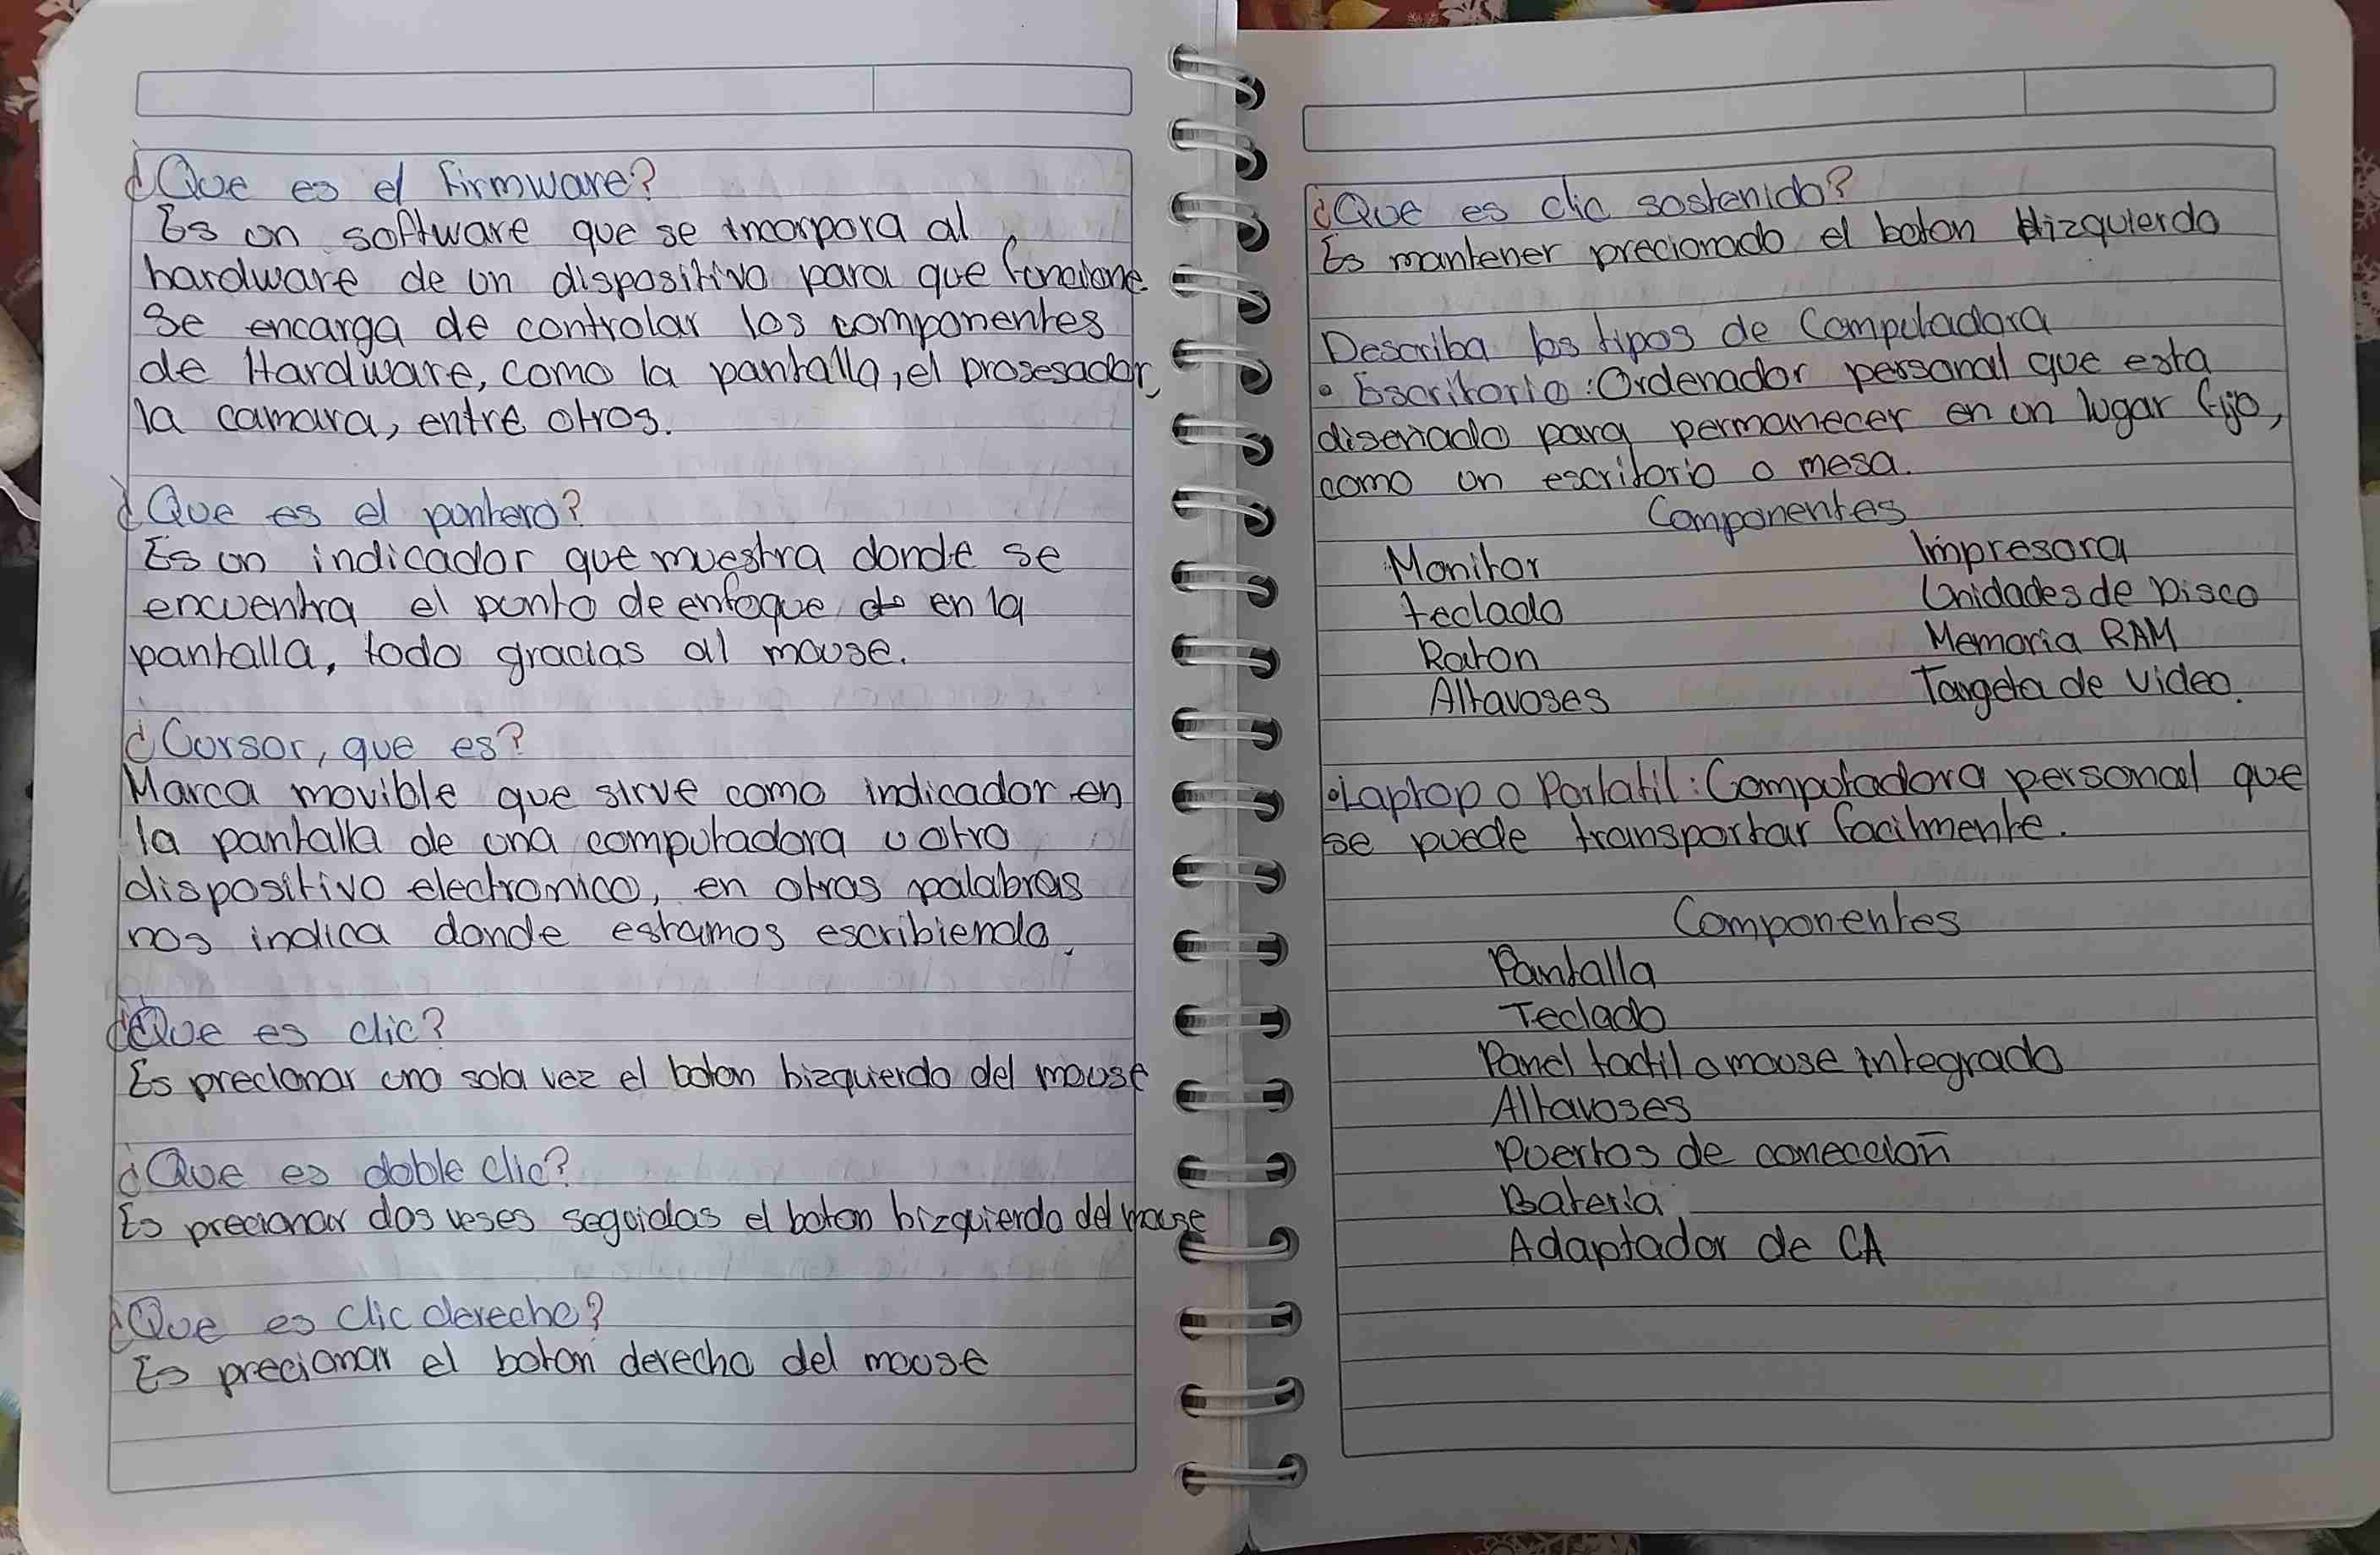 ¿Que es el firmware?
Es un software que se incorpora al
hardware de un dispositivo para que funcione
Se encarga de controlar los componentes
de Hardware, como la pantalla, el prosesador,
la camara, entre otros.
¿Que es el pontero?
Es un indicador que muestra donde se
encuentra el punto de enfoque en la
pantalla, todo gracias al mouse.
¿Cursor, que es?
Marca movible que sirve como indicador en
la pantalla de una computadora u otro
dispositivo electronico, en otras palabras
nos indica donde estamos escribiendo.
¿Que es clic?
Es precionar una sola vez el boton bizquierdo del mouse
¿Que es doble clic?
Es precionar dos veses seguidas el boton bizquierdo del mouse
¿Que es clic derecho?
Es precionar el boton derecho del mouse
¿Que es clic sostenido?
Es mantener precionado el boton izquierdo
Describa los tipos de Computadora
• Escritorio: Ordenador personal que esta
diseñado para permanecer en un lugar fijo,
como un escritorio o mesa.
Componentes
Monitor Impresora
teclado Unidades de Disco
Raton Memoria RAM
Altavoses Targeta de video.
• Laptop o Portatil: Computadora personal que
se puede transportar facilmente.
Componentes
Pantalla
Teclado
Panel tactil o mouse integrado
Altavoses
Puertos de coneccion
Bateria
Adaptador de CA